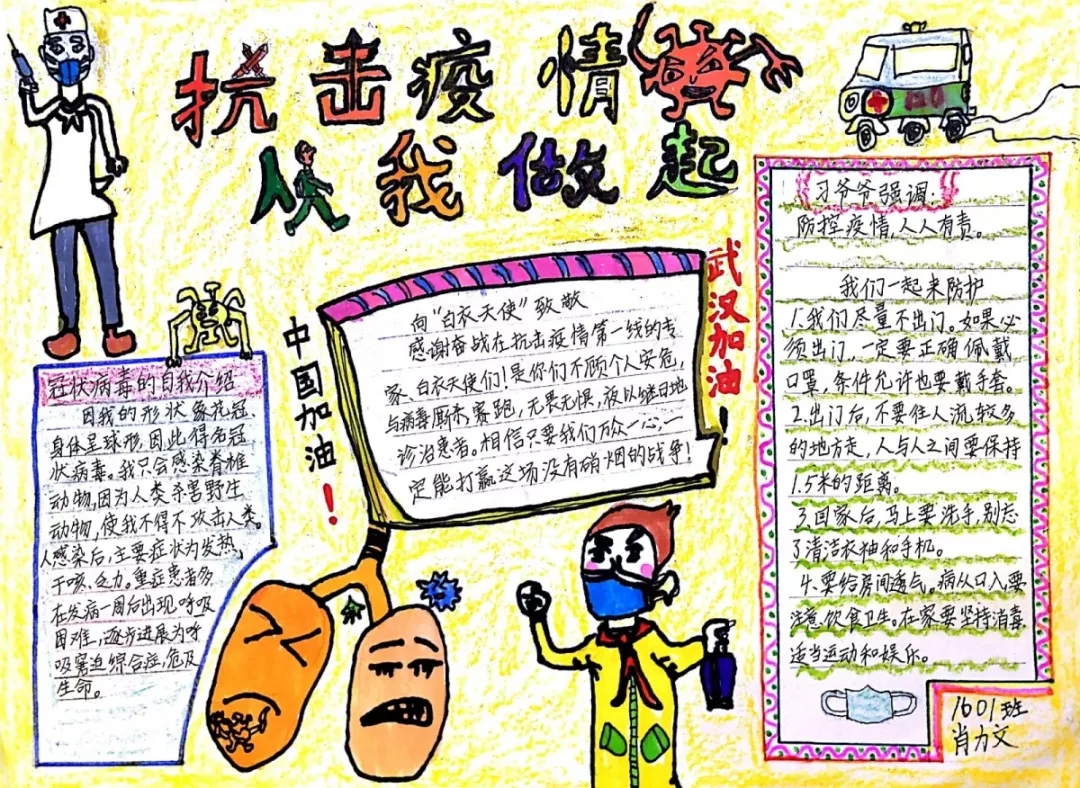 抗击疫情
从我做起
120
习爷爷强调:
防控疫情,人人有责。
我们一起来防护
1.我们尽量不出门。如果必
须出门,一定要正确佩戴
口罩,条件允许也要戴手套。
2.出门后,不要往人流较多
的地方走,人与人之间要保持
1.5米的距离。
3.回家后,马上要洗手,别忘
了清洁衣袖和手机。
4.要给房间透气。病从口入,要
注意饮食卫生。在家要坚持消毒
适当运动和娱乐。
1601班
肖力文
武汉加油!
向“白衣天使”致敬
感谢奋战在抗击疫情第一线的专
家、白衣天使们!是你们不顾个人安危,
与病毒厮杀赛跑,无畏无惧,夜以继日地
诊治患者。相信只要我们万众一心,一
定能打赢这场没有硝烟的战争!
中国加油!
冠状病毒的自我介绍
因我的形状象花冠、
身体呈球形,因此得名冠
状病毒。我只会感染脊椎
动物,因为人类杀害野生
动物,使我不得不攻击人类。
人感染后,主要症状为发热,
干咳、乏力。重症患者多
在发病一周后出现呼吸
困难,逐步进展为呼
吸窘迫综合症,危及
生命。